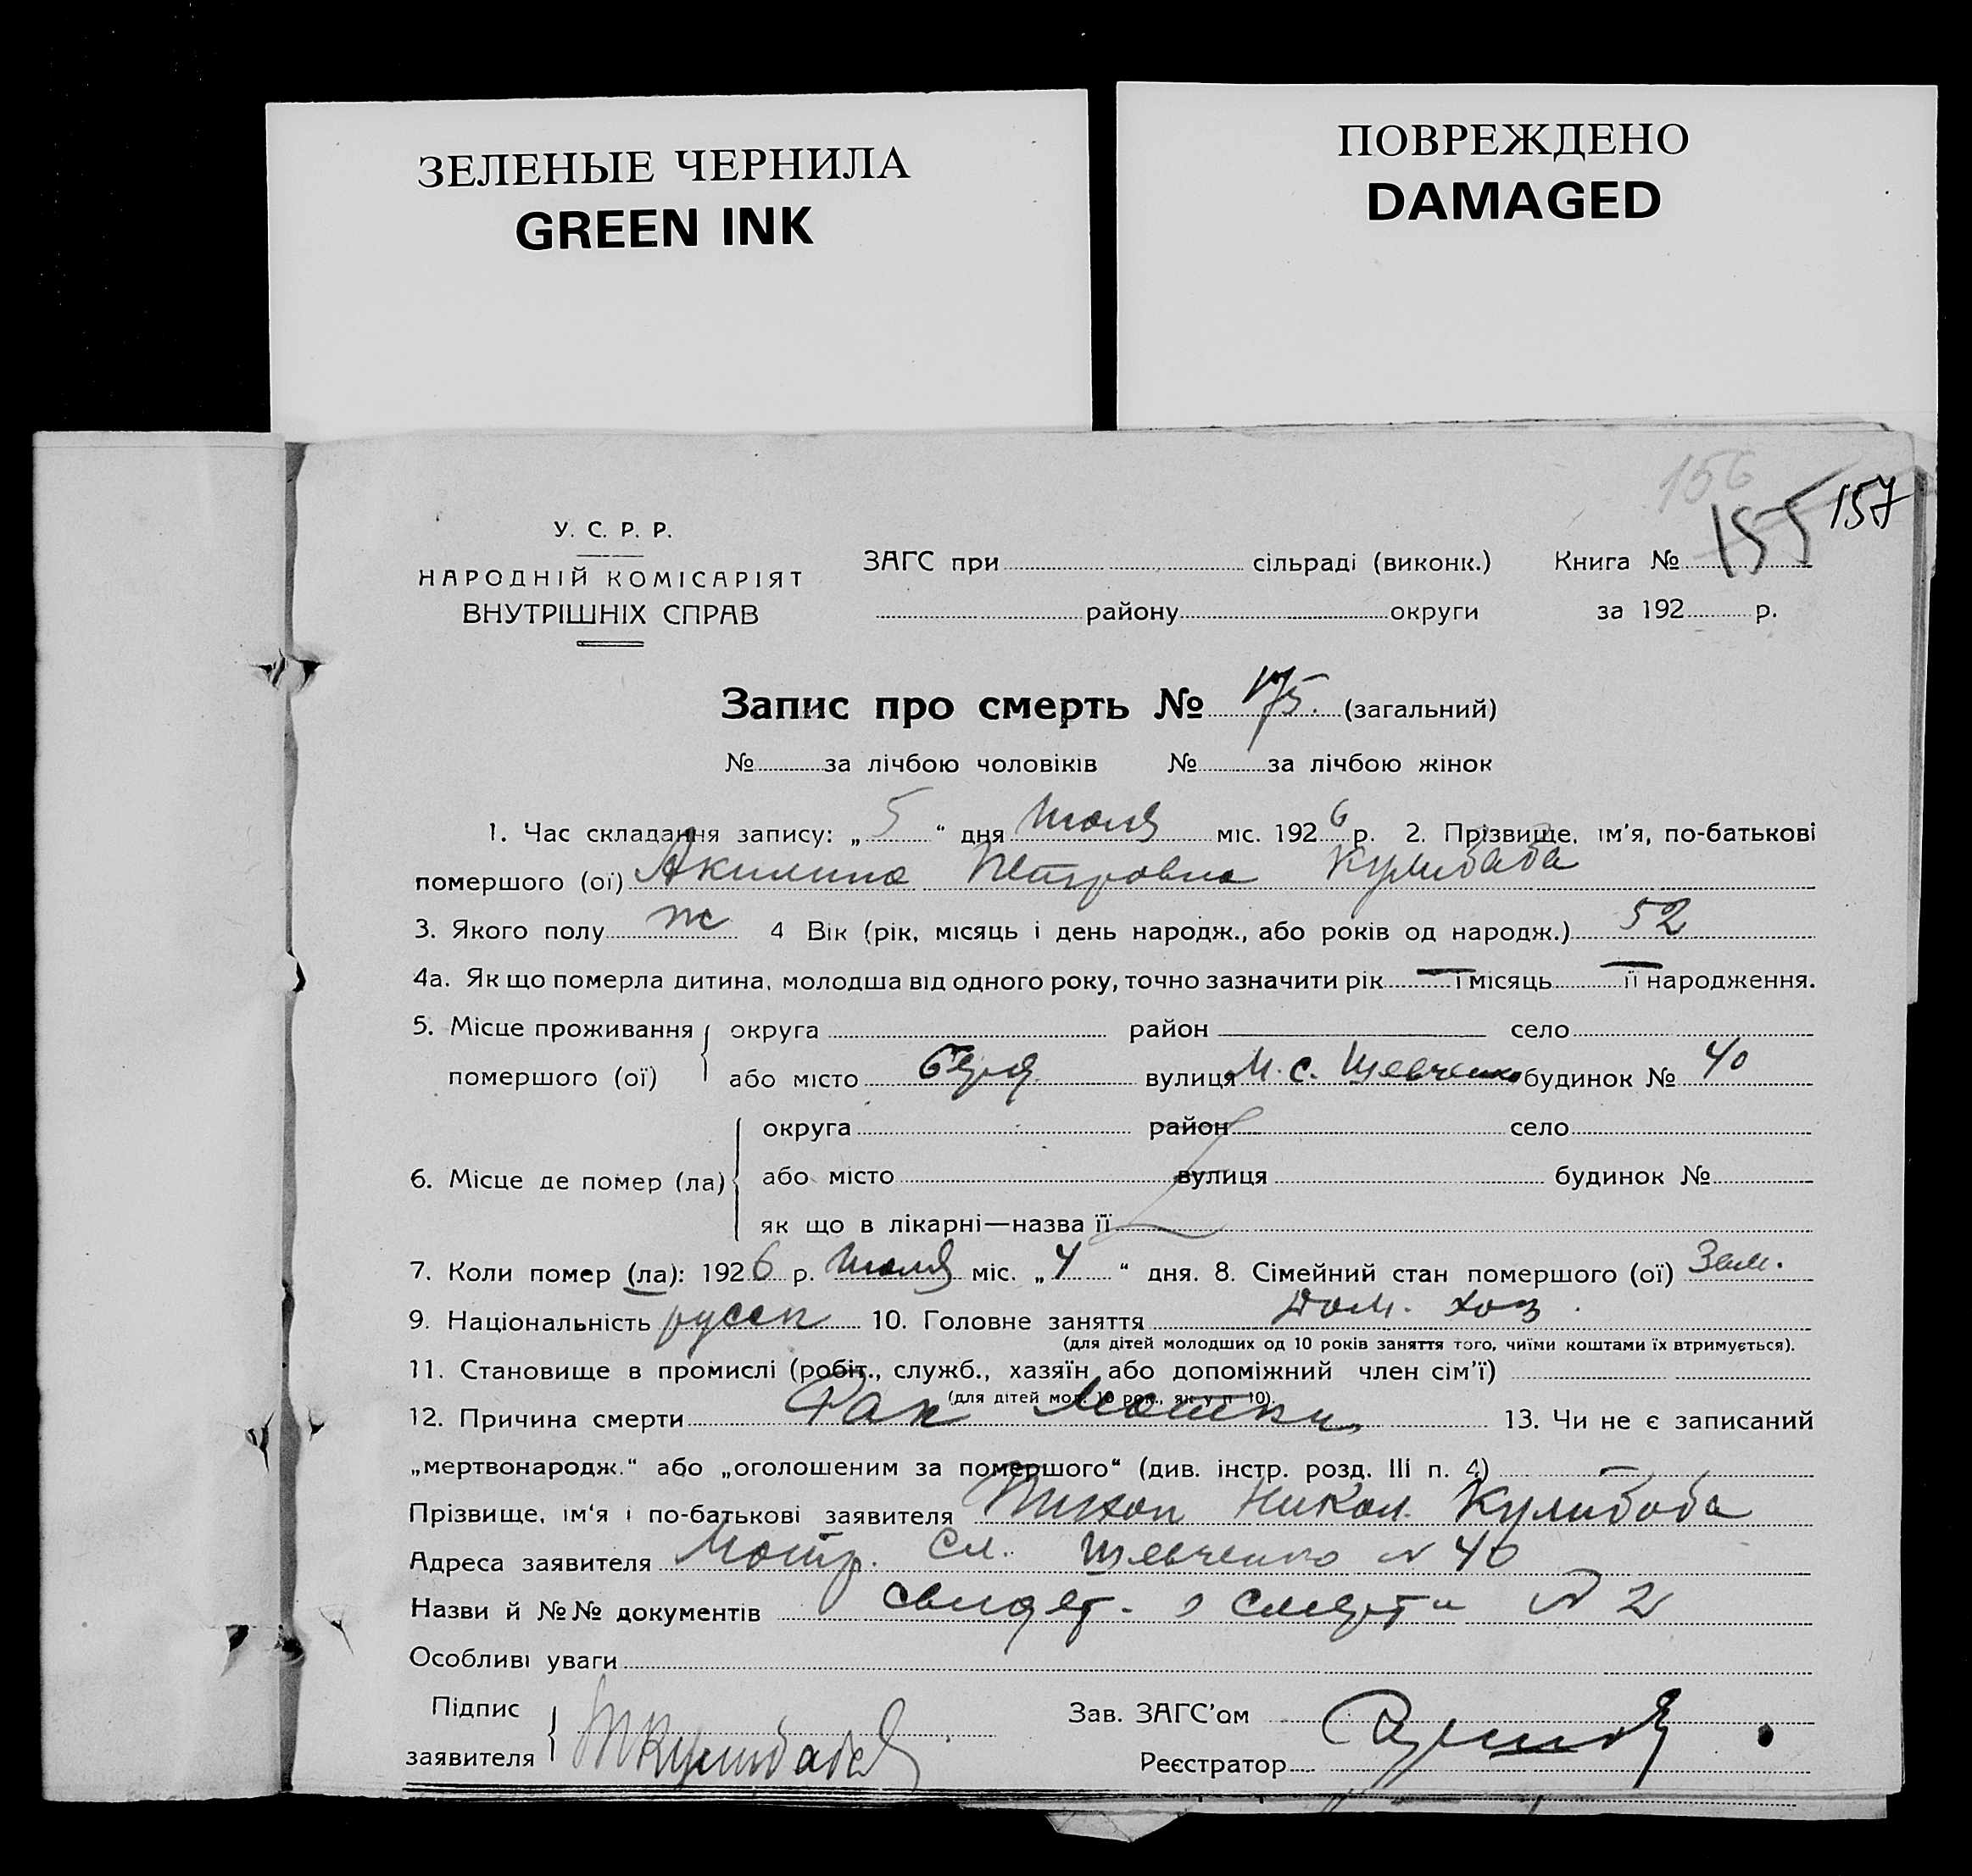 ЗЕЛЕНЫЕ ЧЕРНИЛА
GREEN INK
ПОВРЕЖДЕНО
DAMAGED
156
155 157
У. С. Р. Р.
НАРОДНІЙ КОМІСАРІЯТ
ВНУТРІШНІХ СПРАВ
ЗАГС при сільраді (виконк.)
району округи
Книга №
за 192 р.
Запис про смерть № 175. (загальний)
№ за лічбою чоловіків № за лічбою жінок
1. Час складання запису: „5“ дня Июля міс. 1926 р. 2. Прізвище, ім'я, по-батькові
помершого (ої) Акилина Петровна Кулибаба
3. Якого полу ж 4 Вік (рік, місяць і день народж., або років од народж.) 52
4а. Як що померла дитина, молодша від одного року, точно зазначити рік — і місяць — її народження.
5. Місце проживання округа район село
помершого (ої) або місто вулиця М. С. Шевченко будинок № 40
округа район село
6. Місце де помер (ла) або місто вулиця будинок №
як що в лікарні—назва її
7. Коли помер (ла): 1926 р. Июля міс. „4“ дня. 8. Сімейний стан помершого (ої) Зам.
9. Національність русск 10. Головне заняття Дом. хоз.
(для дітей молодших од 10 років заняття того, чиїми коштами їх втримується).
11. Становище в промислі (робіт., служб., хазяїн або допоміжний член сім'ї)
(для дітей мол. 10 рок., як у п. 10)
12. Причина смерти Рак Матки 13. Чи не є записаний
„мертвонародж.“ або „оголошеним за помершого“ (див. інстр. розд. III п. 4) —
Прізвище, ім'я і по-батькові заявителя Тихон Никол. Кулибаба
Адреса заявителя Сл. Шевченко № 40
Назви й №№ документів свидет. о смерти № 2
Особливі уваги
Підпис
заявителя ТКулибаба
Зав. ЗАГС'ом
Реєстратор